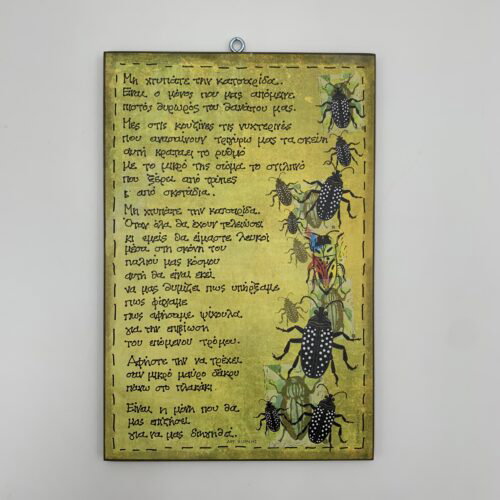 Μη χτυπάτε την κατσαρίδα..
Είναι ο μόνος που μας απόμεινε
πιστός θυρωρός του θανάτου μας.
Μες στις κουζίνες τις νυχτερινές
που ανασαίνουν τριγύρω μας τα σκεύη
αυτή κρατάει το ρυθμό
με το μικρό της σώμα το στιλπνό
που ξέρει από τρύπες
κι από σκοτάδια..
Μη χτυπάτε την κατσαρίδα.
Όταν όλα θα έχουν τελειώσει
κι εμείς θα είμαστε λευκοί
μέσα στη σκόνη του
παλιού μας κόσμου
αυτή θα είναι εκεί
να μας θυμίζει πως υπήρξαμε
πως φύγαμε
πως αφήσαμε ψίχουλα
για την επιβίωση
του επόμενου τρόμου.
Αφήστε την να τρέχει
σαν μικρό μαύρο δάκρυ
πάνω στο πλακάκι
Είναι η μόνη που θα
μας επιζήσει
για να μας διηγηθεί..